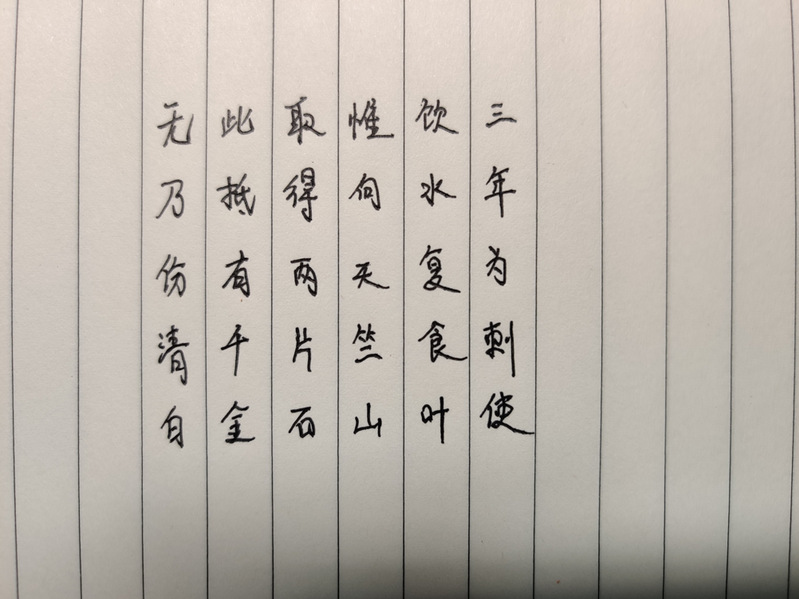 三年为刺使
饮水复食叶
惟向天竺山
取得两片石
此抵有千金
无乃伤清白